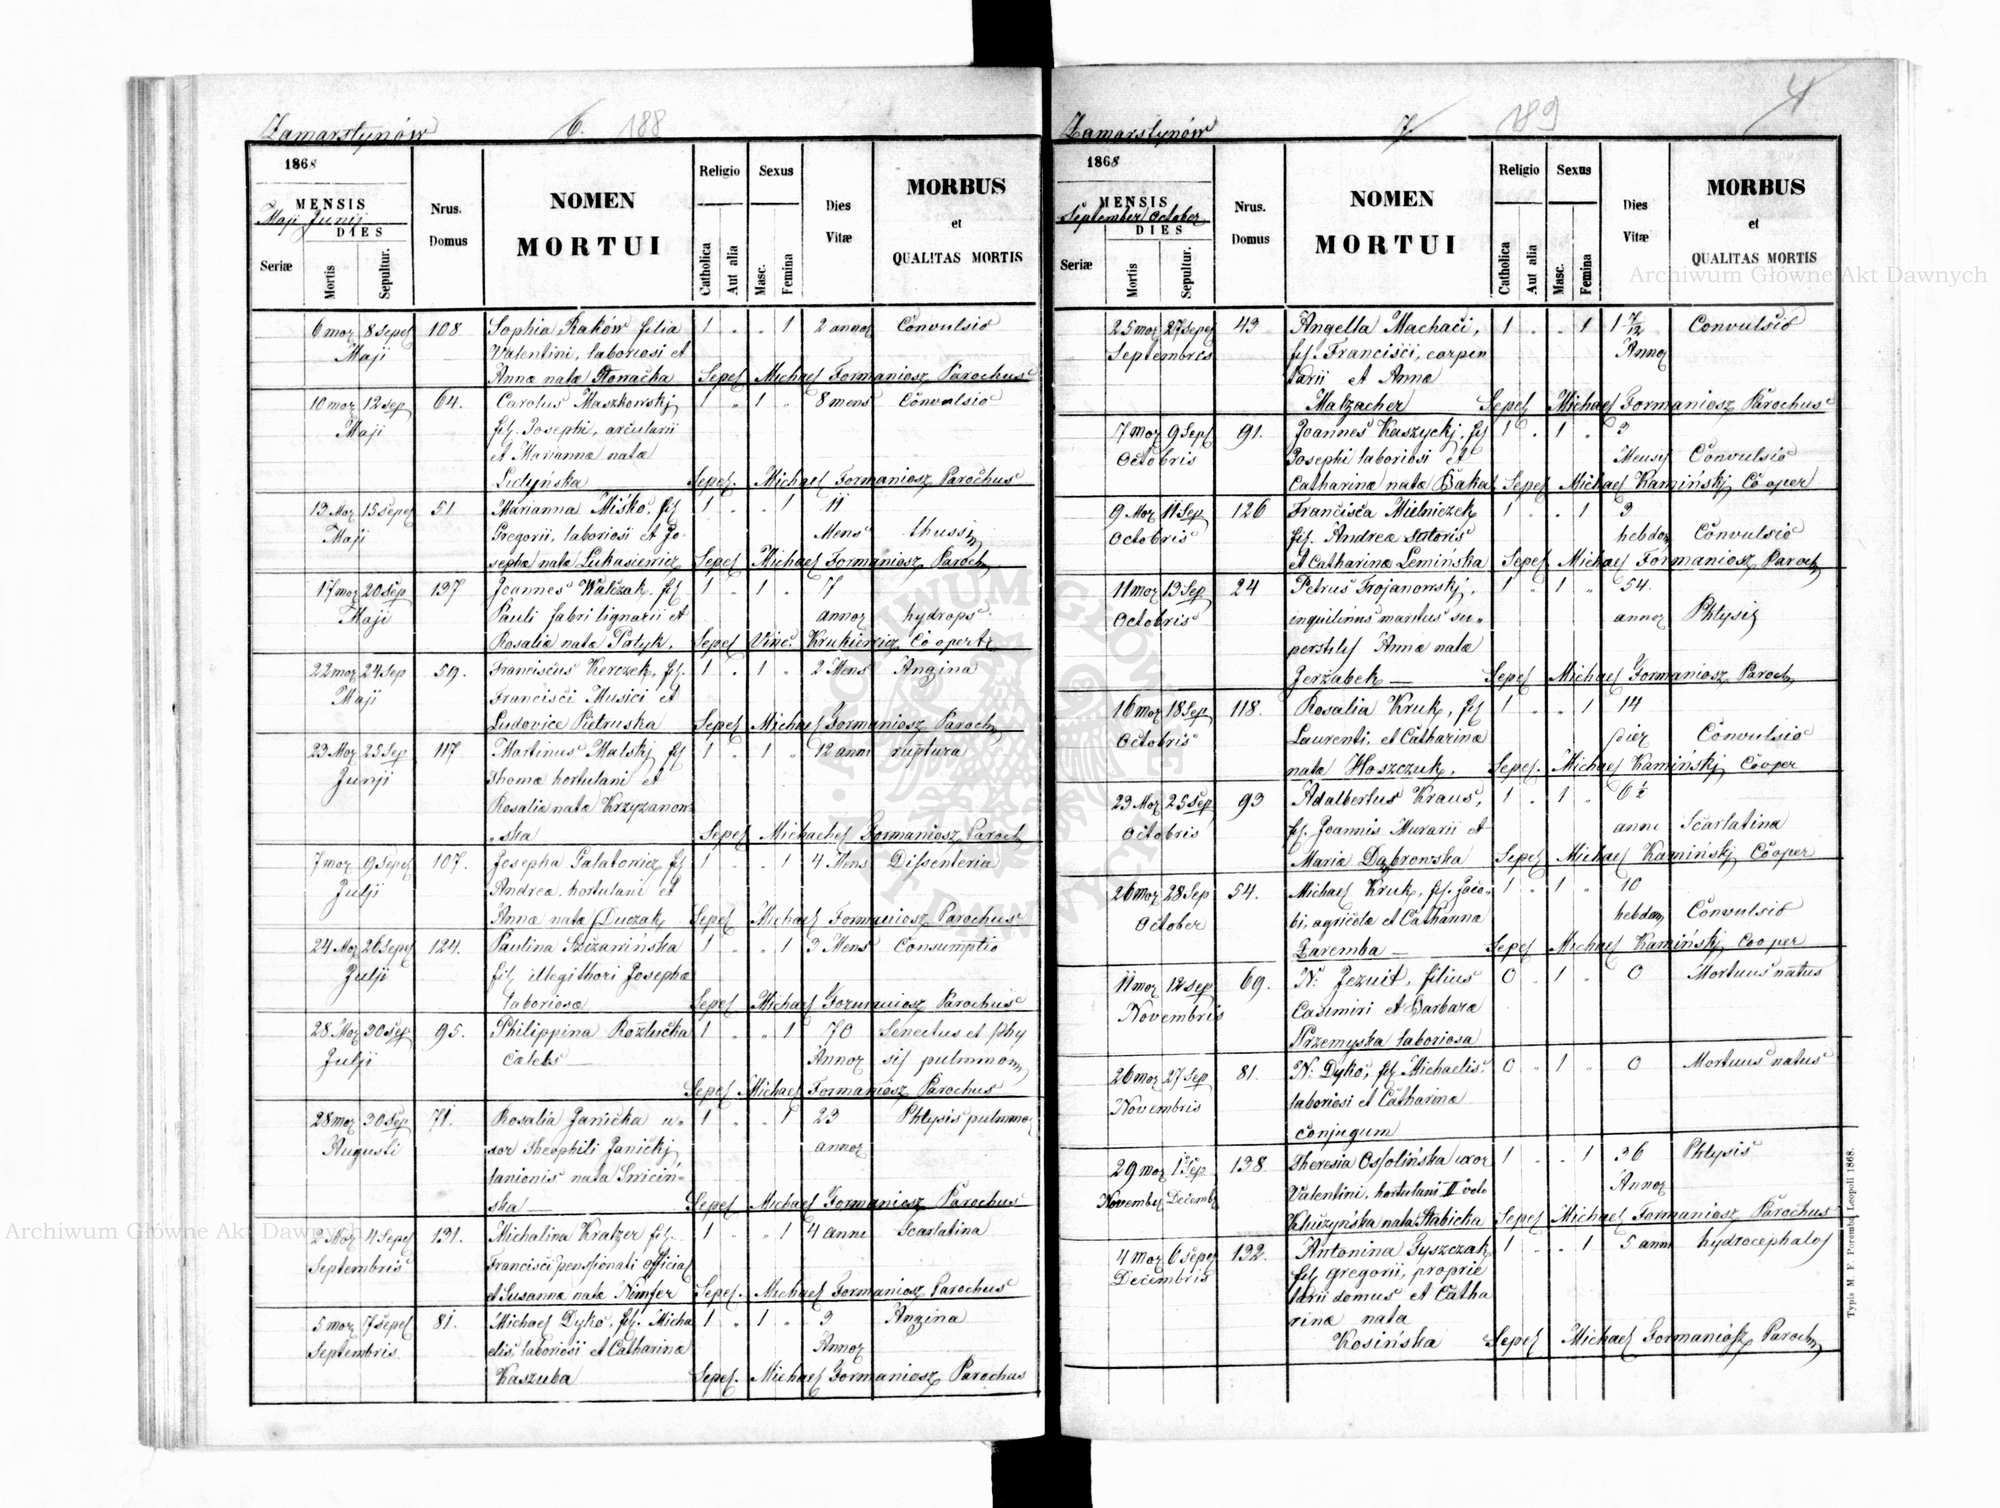 Zamarstynów 6. 188
1868
MENSIS
Maji Junij
DIES
Seriæ
Mortis
Sepultur.
Nrus.
Domus
NOMEN
MORTUI
Religio
Catholica
Aut alia
Sexus
Masc.
Femina
Dies
Vitæ
MORBUS
et
QUALITAS MORTIS
6 mor 8 sepel 108 Sophia Raków filia 1 " " 1 2 annor Convulsio
Maji Valentini, laboriosi et
Annæ nata Sepel Michael Formaniosz Parochus
10 mor 12 sep 64. Carolus Maszkowskj 1 " 1 " 8 mens Convulsio
Maji fil. Josephi, arcularii
et Mariannæ nata
Ludyńska Sepel. Michael Formaniosz Parochus
13 Mor 15 sepel 51. Marianna Miśko, fil 1 " " 1 11
Maji Gregorii, laboriosi et Jo- Mens thussis
sephæ nata Lukasiewicz Sepel Michael Formaniosz Paroch
17 mor 20 sep 137 Joannes Walczak, fil 1 " 1 " 7
Maji Pauli fabri lignarii et annor hydrops
Rosaliæ nata Patyk. Sepel Vinc. Krukiewicz Cooperat.
22 mor 24 sep 59. Franciscus Kerczek, fil. 1 " 1 " 2 Mens Angina
Maji Francisci Musici et
Ludovicæ Pietruska Sepel Michael Formaniosz Paroch
23 Mor 25 sep 117 Martinus Malskj fil 1 " 1 " 12 anni ruptura
Junji Thomæ hortulani et
Rosaliæ nata Krzyzanow-
"ska Sepel Michael Formaniosz Paroch
7 mor 9 sepel 107. Josepha Galatowicz fil 1 " " 1 4 Mens Dissenteria
Julji Andreæ, hortulani et
Annæ nata Duczak Sepel Michael Formaniosz Parochus
24 Mor 26 sepel 124. Paulina 1 " " 1 3 Mens Consumptio
Julji fil. illegithori Josephæ
laboriosæ Sepel Michael Formaniosz Parochus
28 Mor 30 sep 95. Philippina Rozłucka 1 " " 1 70 Senectus et phy
Julji Calebs — Annor sis pulmmon
Sepel Michael Formaniosz Parochus
28 mor 30 sep 71. Rosalia Janicka u- 1 " " 1 23 Phtysis pulmmo
Augusti xor Theophili Janickj annor
lanionis nata Snicin-
ska — Sepel Michael Formaniosz Parochus
2 Mor 4 sepel 131. Michalina Kratzer fil. 1 " " 1 4 anni Scarlatina
Septembris Francisci penssionati official
et Susannæ nata Nimfer Sepel. Michael Formaniosz Parochus
5 mor 7 sepel 81. Michael Dyko, fil. Micha 1 " 1 " 3 Angina
Septembris elis laboriosi et Catharinæ Annor
Kaszuba Sepel. Michael Formaniosz Parochus
Zamarstynów 7 189 4
1868
MENSIS
September October
DIES
Seriæ
Mortis
Sepultur.
Nrus.
Domus
NOMEN
MORTUI
Religio
Catholica
Aut alia
Sexus
Masc.
Femina
Dies
Vitæ
MORBUS
et
QUALITAS MORTIS
25 mor 27 sepel 43 Angella Machaci, 1 " " 1 1 7/12 Convulsio
Septembris fil. Francisci, carpen Annor
tarii et Annæ
Matzacher Sepel Michael Formaniosz Parochus
7 mor 9 Sepl 91. Joannes Kaszyckj, fil 1 " 1 " 3
Octobris Josephi laboriosi et Mensis Convulsio
Catharinæ nata Baka Sepel Michael Kamińskj Cooper
9 Mor 11 Sep 126 Francisca Mielniczek 1 " " 1 3
Octobris fil. Andreæ sutoris hebdom Convulsio
et Catharinæ Lemińska Sepel Michael Formaniosz Paroch
11 mor 13 Sep 24 Petrus Trojanowskj, 1 " 1 " 54.
Octobris inquilinus maritus su- annor Phtysis
perstiti Annæ nata
Jerżabek — Sepel Michael Formaniosz Paroch
16 mor 18 Sep 118. Rosalia Kruk, fil 1 " " 1 14
Octobris Laurenti, et Catharinæ dier Convulsio
nata Hoszczuk, Sepel. Michael Kamińskj Cooper
23 Mor 25 Sep 93 Adalbertus Kraus, 1 " 1 " 6 1/2
Octobris fil. Joannis Murarii et anni Scarlatina
Maria Dąbrowska Sepel Michael Kamińskj Cooper
26 mor 28 Sep 54. Michael Kruk, fil. Jaco- 1 " 1 " 10
October bi, agricolæ et Catharina hebdom Convulsio
Zaremba — Sepel Michael Kamińskj Cooper
11 mor 12 sep 69. N. Jezuit, filius 0 " 1 " 0 Mortuus natus
Novembris Casimiri et Barbaræ
Przemyska laboriosa
26 mor 27 Sep 81. N. Dyko, fil Michaelis 0 " 1 " 0 Mortuus natus
Novembris laboriosi et Catharinæ
conjugum
29 mor 1 Sep 138. Theresia Ossolińska uxor 1 " " 1 36 Phtysis
November December Valentini, hortulani II voto Annor
Kłuzyńska nata Stabicka Sepel Michael Formaniosz Parochus
4 mor 6 sepel 132. Antonina Tyszczak 1 " " 1 5 anni hydrocephalos
Decembris fil gregorii, proprie
tarii domus et Catha
rinæ nata
Kosińska Sepel Michael Formaniosz Paroch
Typis M. F. Poremba Leopoli 1868.
Archiwum Główne Akt Dawnych
Archiwum Główne Akt Dawnych
ARCHIWUM GŁÓWNE AKT DAWNYCH